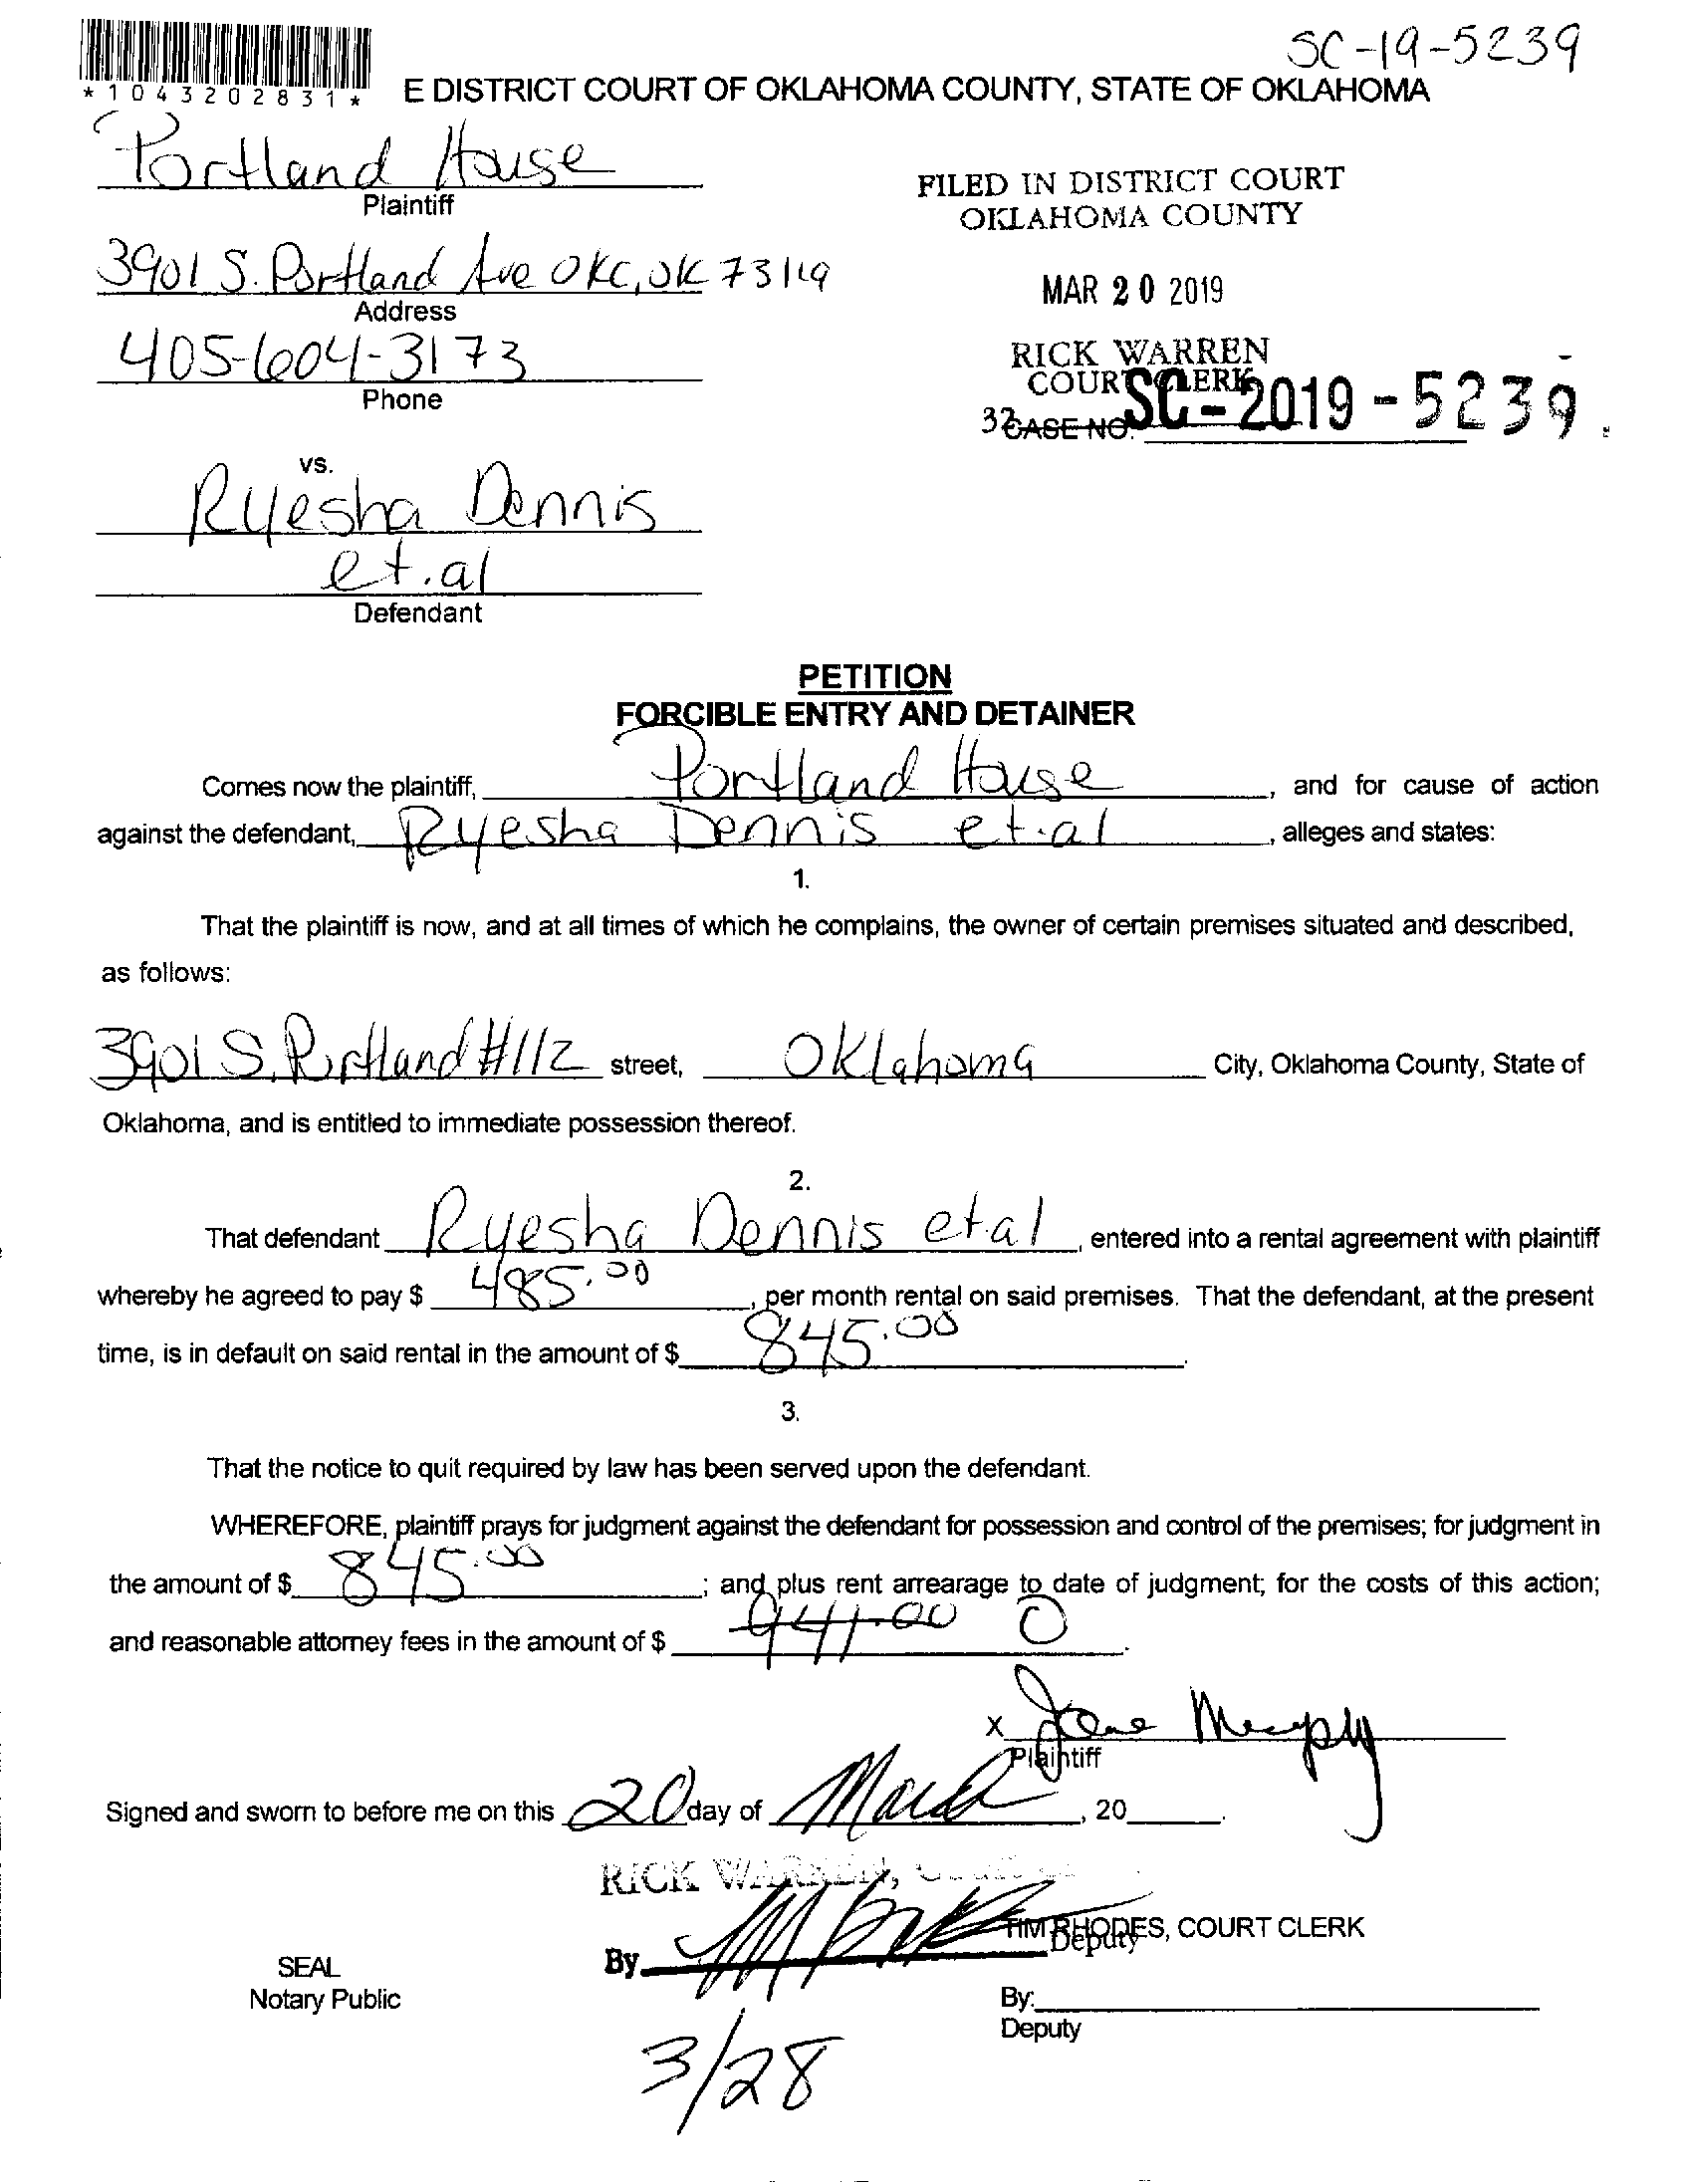 SC-19-5239
*1043202831*
E DISTRICT COURT OF OKLAHOMA COUNTY, STATE OF OKLAHOMA
Portland House
Plaintiff
FILED IN DISTRICT COURT
OKLAHOMA COUNTY
3901 S. Portland Ave OKC, OK 73119
Address
MAR 20 2019
405-604-3173
Phone
RICK WARREN
COURT CLERK
32
CASE NO. SC-2019-5239
vs.
Ryesha Dennis
et.al
Defendant
PETITION
FORCIBLE ENTRY AND DETAINER
Comes now the plaintiff, Portland House, and for cause of action
against the defendant, Ryesha Dennis et.al, alleges and states:
1.
That the plaintiff is now, and at all times of which he complains, the owner of certain premises situated and described,
as follows:
3901 S. Portland #112 street, Oklahoma City, Oklahoma County, State of
Oklahoma, and is entitled to immediate possession thereof.
2.
That defendant Ryesha Dennis etal, entered into a rental agreement with plaintiff
whereby he agreed to pay $ 485.00, per month rental on said premises. That the defendant, at the present
time, is in default on said rental in the amount of $ 845.00.
3.
That the notice to quit required by law has been served upon the defendant.
WHEREFORE, plaintiff prays for judgment against the defendant for possession and control of the premises; for judgment in
the amount of $ 845.00; and plus rent arrearage to date of judgment; for the costs of this action;
and reasonable attorney fees in the amount of $ 941.00 0.
X Jane Murphy
Plaintiff
Signed and sworn to before me on this 20 day of March, 20 .
RICK WARREN,
TIM RHODES, COURT CLERK
By Deputy
SEAL
Notary Public
By:
Deputy
3/28